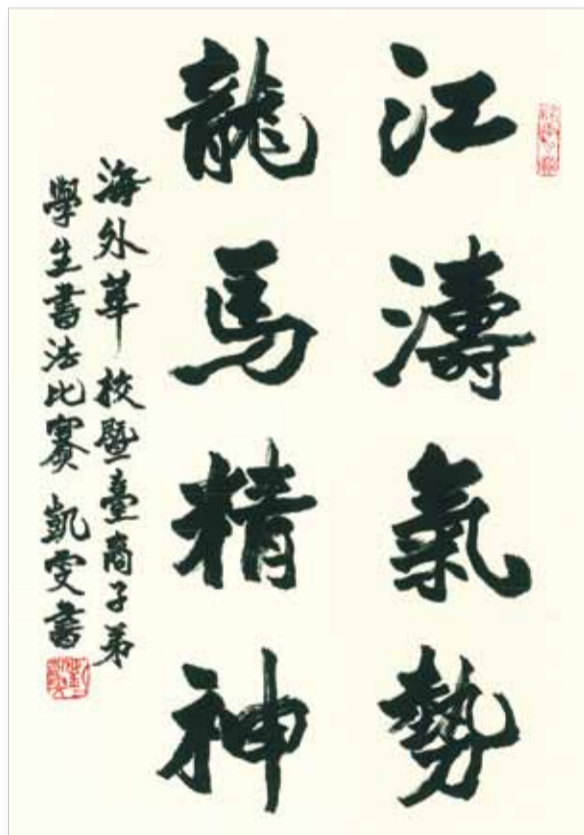 江濤氣勢
龍馬精神
海外華校暨臺商子弟
學生書法比賽 凱雯書